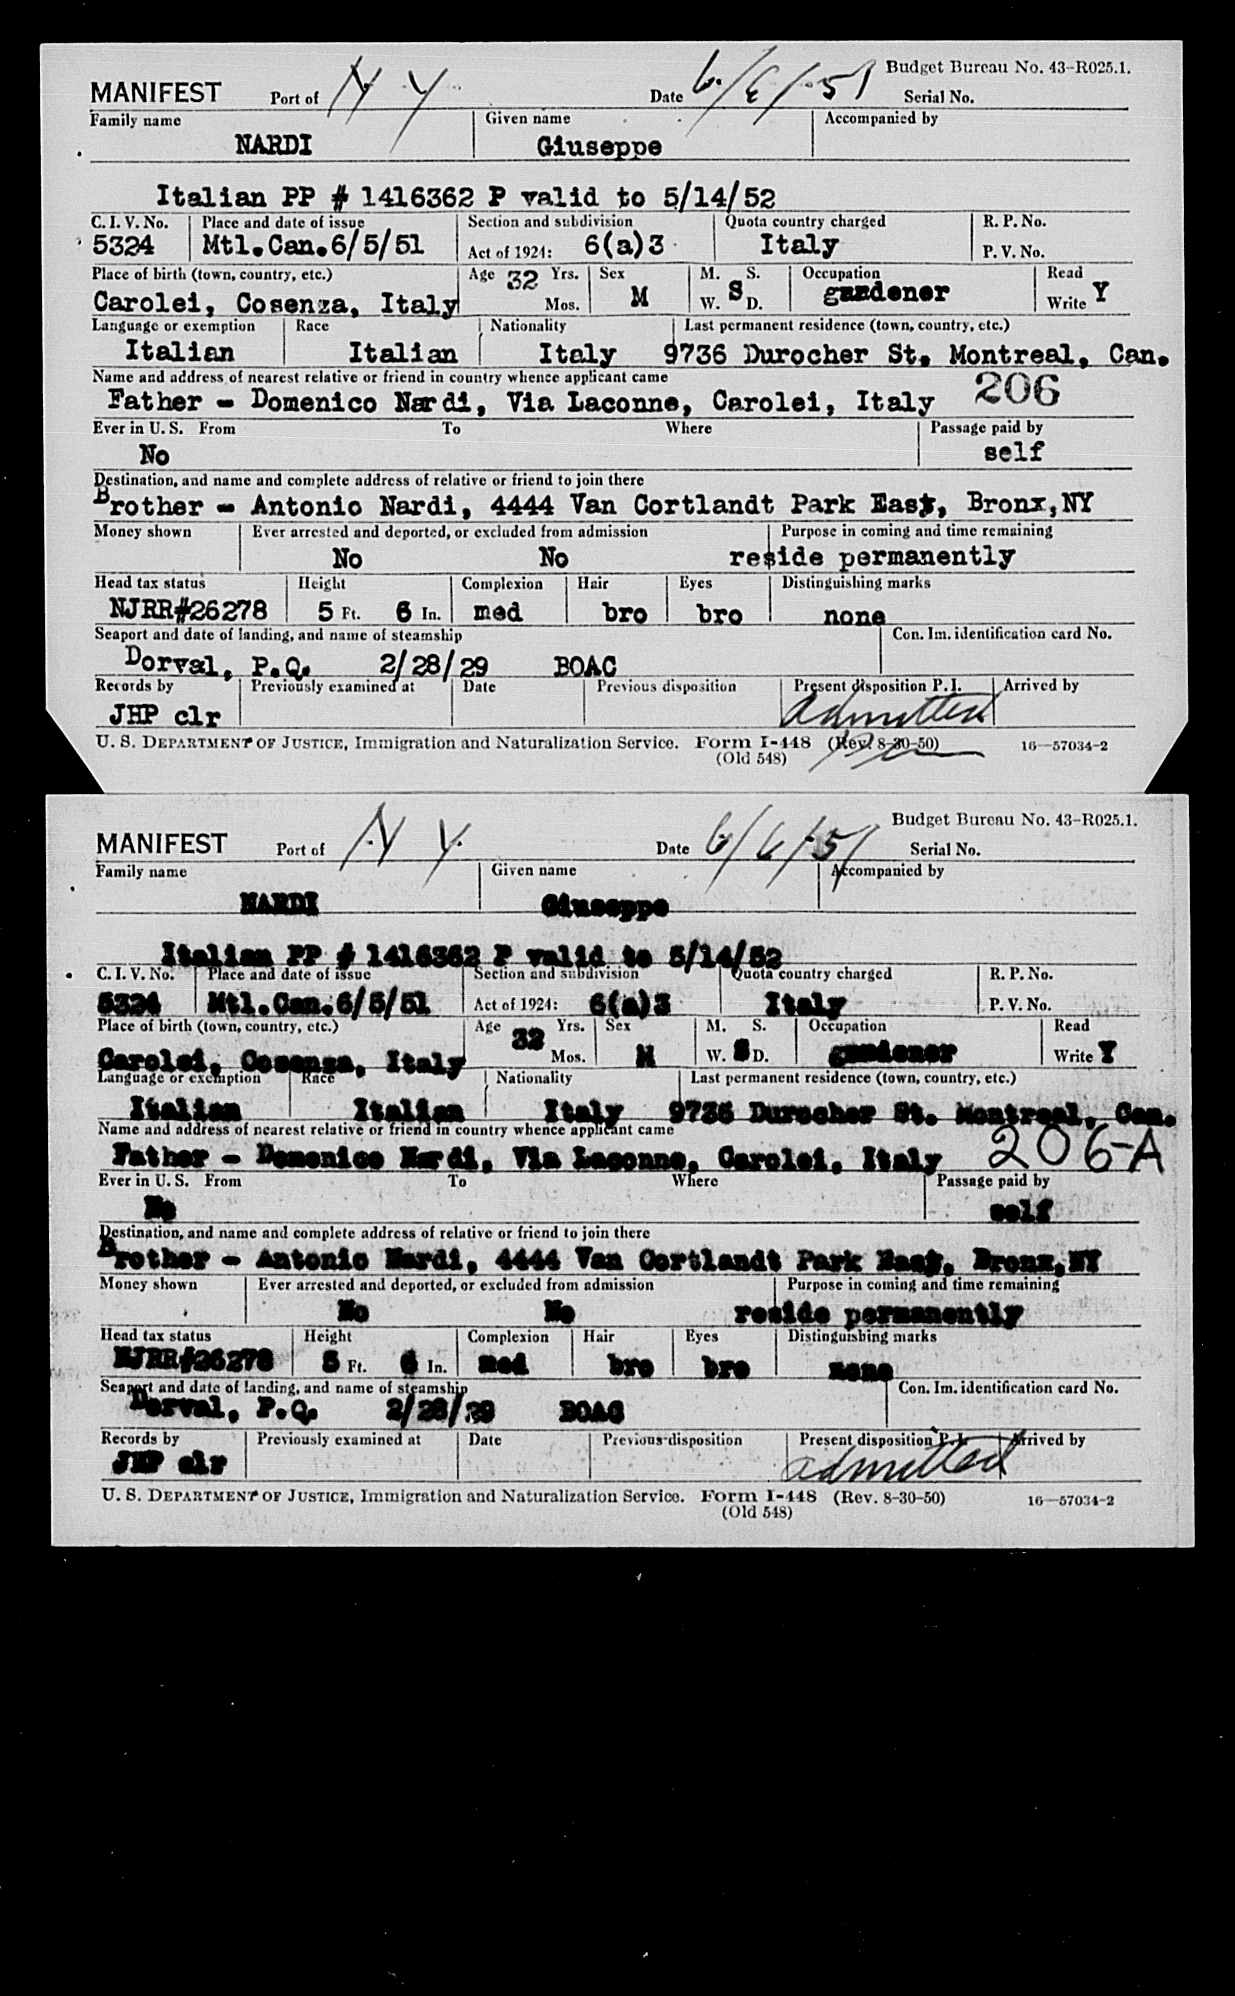 MANIFEST Port of N Y Date 6/6/51 Budget Bureau No. 43-R025.1.
Serial No.
Family name Given name Accompanied by
NARDI Giuseppe
Italian PP # 1416362 P valid to 5/14/52
C. I. V. No. Place and date of issue Section and subdivision Quota country charged R. P. No.
5324 Mtl.Can.6/5/51 Act of 1924: 6(a)3 Italy P. V. No.
Place of birth (town, country, etc.) Age 32 Yrs. Sex M. S. Occupation Read
Carolei, Cosenza, Italy Mos. M W. S D. gardener Write Y
Language or exemption Race Nationality Last permanent residence (town, country, etc.)
Italian Italian Italy 9736 Durocher St. Montreal, Can.
Name and address of nearest relative or friend in country whence applicant came
Father - Domenico Nardi, Via Laconne, Carolei, Italy 206
Ever in U. S. From To Where Passage paid by
No self
Destination, and name and complete address of relative or friend to join there
Brother - Antonio Nardi, 4444 Van Cortlandt Park East, Bronx,NY
Money shown Ever arrested and deported, or excluded from admission Purpose in coming and time remaining
No No reside permanently
Head tax status Height Complexion Hair Eyes Distinguishing marks
NJRR#26278 5 Ft. 6 In. med bro bro none
Seaport and date of landing, and name of steamship Con. Im. identification card No.
Dorval, P.Q. 2/28/29 BOAC
Records by Previously examined at Date Previous disposition Present disposition P. I. Arrived by
JHP clr admitted
U. S. DEPARTMENT OF JUSTICE, Immigration and Naturalization Service. Form I-448 (Rev. 8-30-50) 16—57034-2
(Old 548)
MANIFEST Port of N Y Date 6/6/51 Budget Bureau No. 43-R025.1.
Serial No.
Family name Given name Accompanied by
NARDI Giuseppe
Italian PP # 1416362 P valid to 5/14/52
C. I. V. No. Place and date of issue Section and subdivision Quota country charged R. P. No.
5324 Mtl.Can.6/5/51 Act of 1924: 6(a)3 Italy P. V. No.
Place of birth (town, country, etc.) Age 32 Yrs. Sex M. S. Occupation Read
Carolei, Cosenza, Italy Mos. M W. S D. gardener Write Y
Language or exemption Race Nationality Last permanent residence (town, country, etc.)
Italian Italian Italy 9736 Durocher St. Montreal, Can.
Name and address of nearest relative or friend in country whence applicant came
Father - Domenico Nardi, Via Laconne, Carolei, Italy 206-A
Ever in U. S. From To Where Passage paid by
No self
Destination, and name and complete address of relative or friend to join there
Brother - Antonio Nardi, 4444 Van Cortlandt Park East, Bronx,NY
Money shown Ever arrested and deported, or excluded from admission Purpose in coming and time remaining
No No reside permanently
Head tax status Height Complexion Hair Eyes Distinguishing marks
NJRR#26278 5 Ft. 6 In. med bro bro none
Seaport and date of landing, and name of steamship Con. Im. identification card No.
Dorval, P.Q. 2/28/29 BOAC
Records by Previously examined at Date Previous disposition Present disposition P. I. Arrived by
JHP clr admitted
U. S. DEPARTMENT OF JUSTICE, Immigration and Naturalization Service. Form I-448 (Rev. 8-30-50) 16—57034-2
(Old 548)